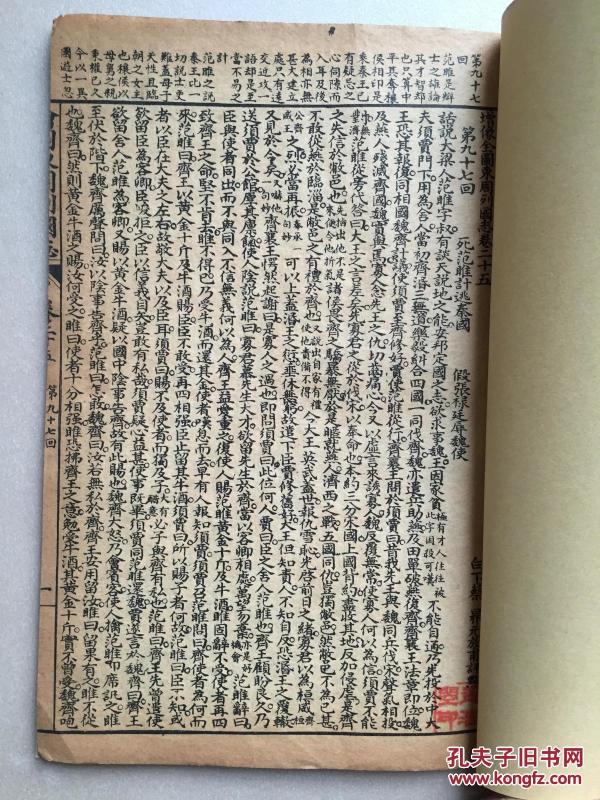 第九十七
回
范雎是辯
士之雄論
其才智却
也只算中
平其奪穰
侯相印是
乘秦王已
有疑忌之
心伺隙而
入耳及後
為相亦無
甚大建立
處只有遠
交近攻一
語却是至
當不易之
計
范雎之說
秦王也一
切說士更
難蓋母子
天性且臨
朝之女主
也穰侯以
母舅之親
秉權已久
今以一異
國遊士忍
增像全圖東周列國志卷二十五
第九十七回 死范雎計逃秦國 假張祿廷辱魏使
話說大梁人范雎字叔有談天說地之能安邦定國之志欲求事魏王因家貧 不能自通乃先投於中大
夫須賈門下用為舍人當初齊湣王無道樂毅糾合四國一同伐齊魏亦遣兵助燕及田單破燕復齊齊襄王法章即位魏
王恐其報復同相國魏齊計議使須賈至齊修好賈使范雎從行齊襄王問於須賈曰昔我先王與魏同兵伐宋聲氣相投
及燕人殘滅齊國魏實與焉寡人念先王之仇切齒腐心今又以虛言來誘寡人魏反覆無常使寡人何以為信須賈不能
對范雎從旁代答曰大王之言差矣先寡君之從於伐宋以奉命也本約三分宋國上國背約盡收其地反加侵虐是齊
之失信於敝邑也
不敢從燕於臨淄是敝邑之有禮於齊也 今大王英武蓋世報仇雪恥光啟前日之緒寡君以為桓威
之烈必當再振 可以上蓋湣王之愆垂休無窮故遣下臣賈修舊好大王但知責人不知自反恐湣王之覆轍
又見於今矣 齊襄王愕然起謝曰是寡人之過也即問須賈曰此位何人賈曰臣之舍人范雎也齊王顧盼良久乃
送須賈於公館厚其廩餼使人陰說范雎曰寡君慕先生大才欲留先生於齊當以客卿相處萬望勿棄 范雎辭曰
臣與使者同出而不與同入不信無義何以為人齊王益愛重之復使人賜范雎黃金十斤及牛酒雎固辭不受使者再四
致齊王之命堅不肯去雎不得已乃受牛酒而還其金使者嘆息而去早有人報知須賈須賈召范雎問曰齊使者為何而
來范雎曰齊王以黃金十斤及牛酒賜臣臣不敢受再四相強臣止留其牛酒須賈曰所以賜子者何故范雎曰臣不知或
者以臣在大夫之左右故敬大夫以及臣耳須賈曰賜不及使者而獨及子 必子與齊有私也范雎曰齊王先曾遣使
欲留臣為客卿臣峻拒之臣以信義自矢豈敢有私哉須賈疑心益甚使事既畢須賈同范雎還魏賈遂言於魏齊曰齊王
欲留舍人范雎為客卿又賜以黃金牛酒疑以國中陰事告齊故有此賜也魏齊大怒乃會賓客使人擒范雎即席訊之雎
至伏於階下魏齊厲聲問曰汝以陰事告齊乎范雎曰怎敢魏齊曰汝若無私於齊齊王安用留汝雎曰留果有之雎不從
也魏齊曰然則黃金牛酒之賜汝何受之雎曰使者十分相強雎恐拂齊王之意勉受牛酒其黃金十斤實不曾受魏齊咆
卷二十五
第九十七回
一
孔夫子旧书网
www.kongfz.com